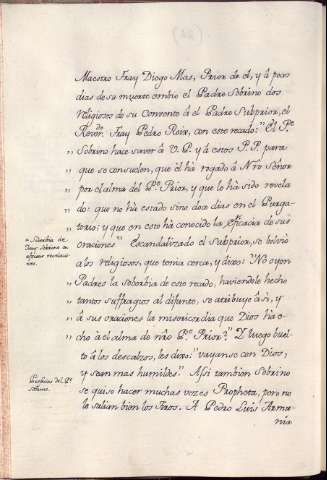 Maestro Fray Diego Mas, Prior de el, y á poco
dias de su muerte embio el Padre Sobrino dos
religiosos de su Convento á el Padre Subprior, el
Reverdo. Fray Pedro Roix, con este recado: "El Pe.
" Sobrino hace saver á V. P. y á estos P.P. para
" que se consuelen, que él ha rogado á Nro Señor
" por el alma del Pe. Prior, y que le ha sido revela
" do: que no há estado sino doce dias en el Purga-
" torio; y que en esto há conocido la eficacia de sus
" oraciones" Escandalizado el subprior, se bolvió
" a los religiosos, que tenia cerca, y dixo: "No oyen
" Padres la sobervia de este recado, haviendole hecho
" tantos suffragios al difunto, se atribuye á si, y
" á sus oraciones la misericordia que Dios há e-
" cho á el alma de nro Pe. Prior?" Y luego buel-
" to á los descalzos, les dixo: vayanse con Dios,
" y sean mas humildes" Assi tambien Sobrino
se quiso hacer muchas vezes Propheta, pero no
le salian bien los tiros. A Pedro Luis Arme
nia
Sobervia de
Sobrino
Profecias del Pe.
Sobrino.